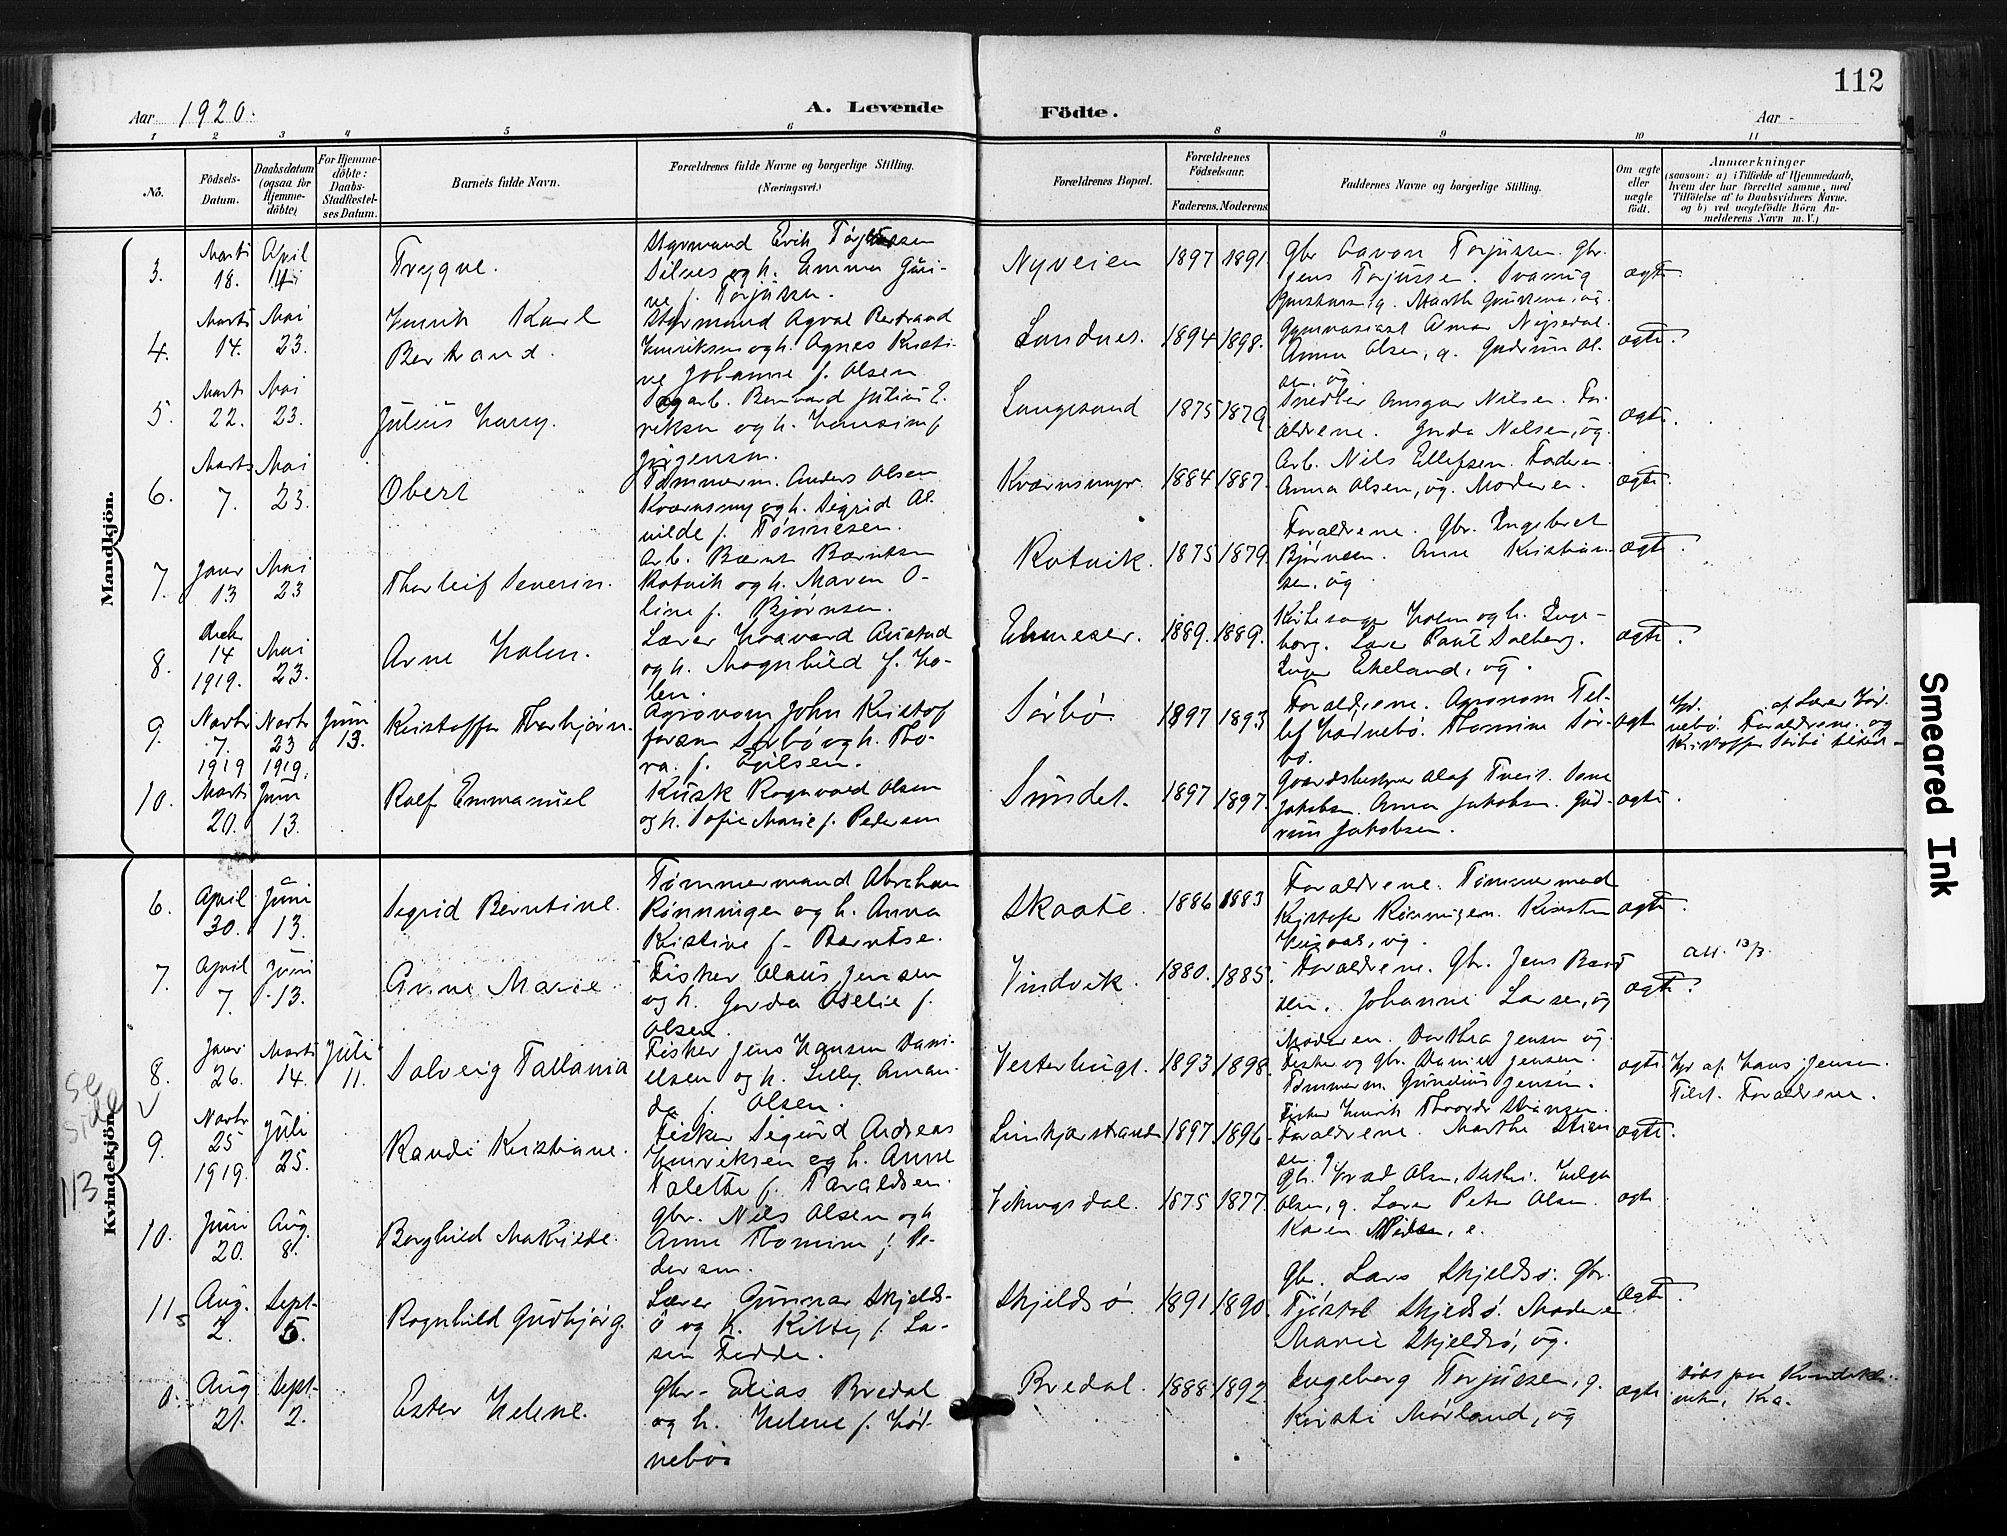 112
Aar 1920.
A. Levende Födte.
Aar
1 2 3 4 5 6 8 9 10 11
No.
Födsels-Datum.
Daabsdatum (ogsaa for Hjemme-döbte)
For Hjemme-döbte: Daabs-Stadfæstel-ses Datum.
Barnets fulde Navn.
Forældrenes fulde Navne og borgerlige Stilling. (Næringsvei.)
Forældrenes Bopæl.
Forældrenes Födselsaar.
Faderens. Moderens.
Faddernes Navne og borgerlige Stilling.
Om ægte eller uægte födt.
Anmærkninger
(saasom: a) i Tilfælde af Hjemmedaab, hvem der har forrettet samme, med Tilföielse af to Daabsvidners Navne, og b) ved uægtefödte Börn Anmelderens Navn m. V.)
Mandkjön.
3. Marts 18. April Trygve.
Styrmand Erik
og h. Emma
f. Torjussen.
Nyveien 1897 1891
Gbr. Torjussen. Gbr.
Jens Torjussen.
ægte
4. Marts 14. Mai 23. Henrik Karl Bertrand.
Styrmand Agval Bertrand
Henriksen og h. Agnes Kristi-
ne Johanne f. Olsen
Sandnes. 1894 1898.
Gymnasiast
Anna Olsen, g. Gudrun Ol-
sen, ug.
ægte.
5. Marts 22. Mai 23. Julius Harry.
Bernhard Julius E-
riksen og h. Hansine f.
Jörgensen.
Langesand 1875 1879.
Snedker Ansgar Nilsen. For-
ældrene. Gerda Nilsen, ug.
ægte.
6. Marts 7. Mai 23. Obert
Tømmerm. Anders Olsen
og h. Sigrid Al-
vilde f. Tønnesen.
1884 1887.
Arb. Nils Ellefsen. Faderen
Anna Olsen, ug. Moderen.
ægte
7. Januar 13 Mai 23 Thorleif Severin.
Arb. Bernt Berntsen
Rotvik og h. Maren O-
line f. Bjørnsen.
Rotvik. 1875 1879.
Forældrene. Gbr. Engebret
Bjørnsen. Anne Kristian-
sen, ug.
ægte.
8. Decbr 14 1919. Mai 23. Arne Holm.
Lærer Haavard Austad
og h. Magnhild f. Ho-
len.
Ebeneser. 1889. 1889.
Kirkesanger Holm og h. Inge-
borg. Lærer Paul Solberg.
Inga Ekeland, ug.
ægte.
9. Novbr 7. 1919 Novbr 23 1919. Juni 13. Kristoffer Thorbjørn.
Agronom John Kristof
fersen Sørbø og h. Tho-
ra f. Egilsen.
Sørbø 1897 1893
Forældrene. Agronom Tel-
lef Hørnebø. Thomine Sør-
bø.
ægte
af Lærer Hør-
nebø. Forældrene og
Kristoffer Sørbø tilsted-
10. Marts 20. Juni 13. Rolf Emmanuel
Kusk Ragnvald Olsen
og h. Sofie Marie f. Pedersen
Sundet. 1897 1897.
Gaardsbestyrer Olaf Tveit.
Jakobsen. Anna Jakobsen. Gud-
run Jakobsen.
ægte.
Kvindekjön.
6. April 30. Juni 13. Sigrid Berntine.
Tømmermand Abraham
Rønningen og h. Anna
Kristine f. Berntse.
Skaate. 1886 1883
Forældrene. Tømmermand
Kristofer Rønningen. Kirsten
ug.
ægte.
7. April 7. Juni 13. Anne Marie
Fisker Olaus Jensen
og h. Gerda Oselie f.
Olsen.
Vindvik. 1880. 1885.
Forældrene. Gbr. Jens
Johanne Larsen, ug
ægte.
att. 13/3
8. Januar 26. Marts 14. Juli 11. Solveig Tallania
Fisker Jens Hansen Dani-
elsen og h. Lilly Aman-
da f. Olsen.
Vesterbugt. 1893 1898.
Moderen. Dorthea Jensen ug
Fisker og gbr. Daniel Jensen.
Tømmerm. Gundius Jensen.
ægte
Hjd af Hans Jensen.
Tilst. Forældrene.
se side 113
9. Novbr 25 1919. Juli 25. Randi Kristiane.
Fisker Sigurd Andreas
Henriksen og h. Anne
Talette f. Taraldsen.
1897 1896
Fisker Henrik
Forældrene. Marthe
ægte.
10. Juni 20. Aug. 8. Borghild Mathilde.
Gbr. Nils Olsen og h
Anne Thomine f. Pe-
dersen.
Vikingsdal. 1875 1877.
Gbr. Olsen, Helga
Olsen, g. Lærer Peter Olsen.
Karen Nilsen, e.
ægte
11 Aug. 2. Sept. 5. Ragnhild Gudbjørg.
Lærer Gunnar Skjelds-
ø og h. Kitty f. La-
sen Fedde.
Skjeldsø 1891 1890.
Gbr. Lars Skjeldsø. Gbr.
Tjøstol Skjeldsø. Moderen
Marie Skjeldsø, ug.
ægte.
Aug 21. Sept. 2. Ester Helene.
Gbr. Elias Bredal
og h. Helene f. Hør-
nebø.
Bredal. 1888 1892.
Ingeborg Torjussen, g.
Kirsti Mørland, ug
ægte
Døbt paa
Kra.
Smeared Ink